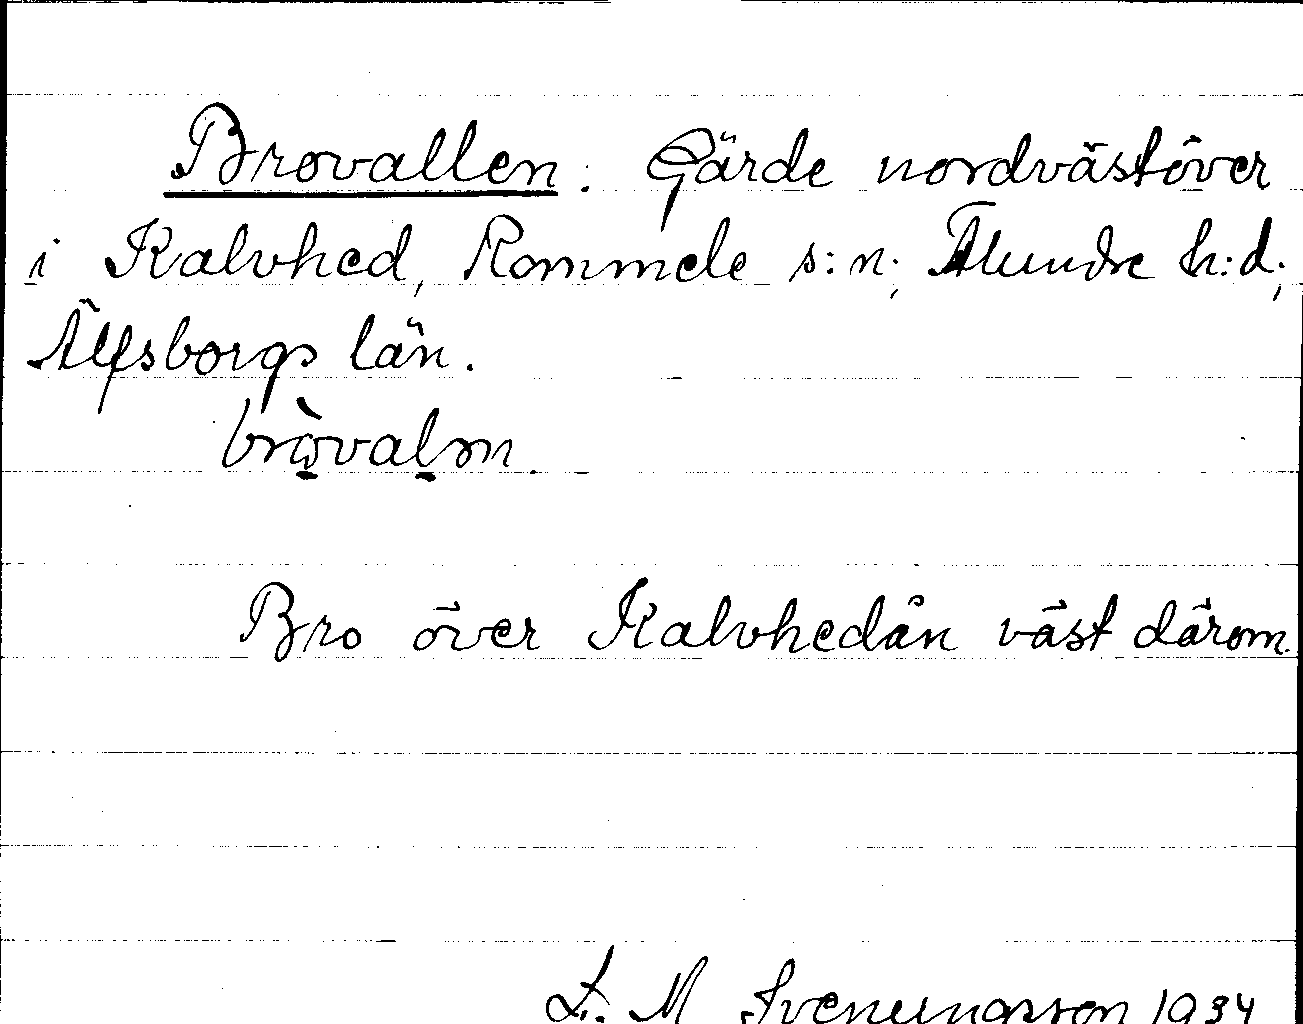 Brovallen. Gärde nordvästöver
i Kalvhed, Rommele s:n; Flundre h:d;
Älfsborgs län.
bròvalən.
Bro över Kalvhedån väst därom.
L. M. Svenungsson 1934